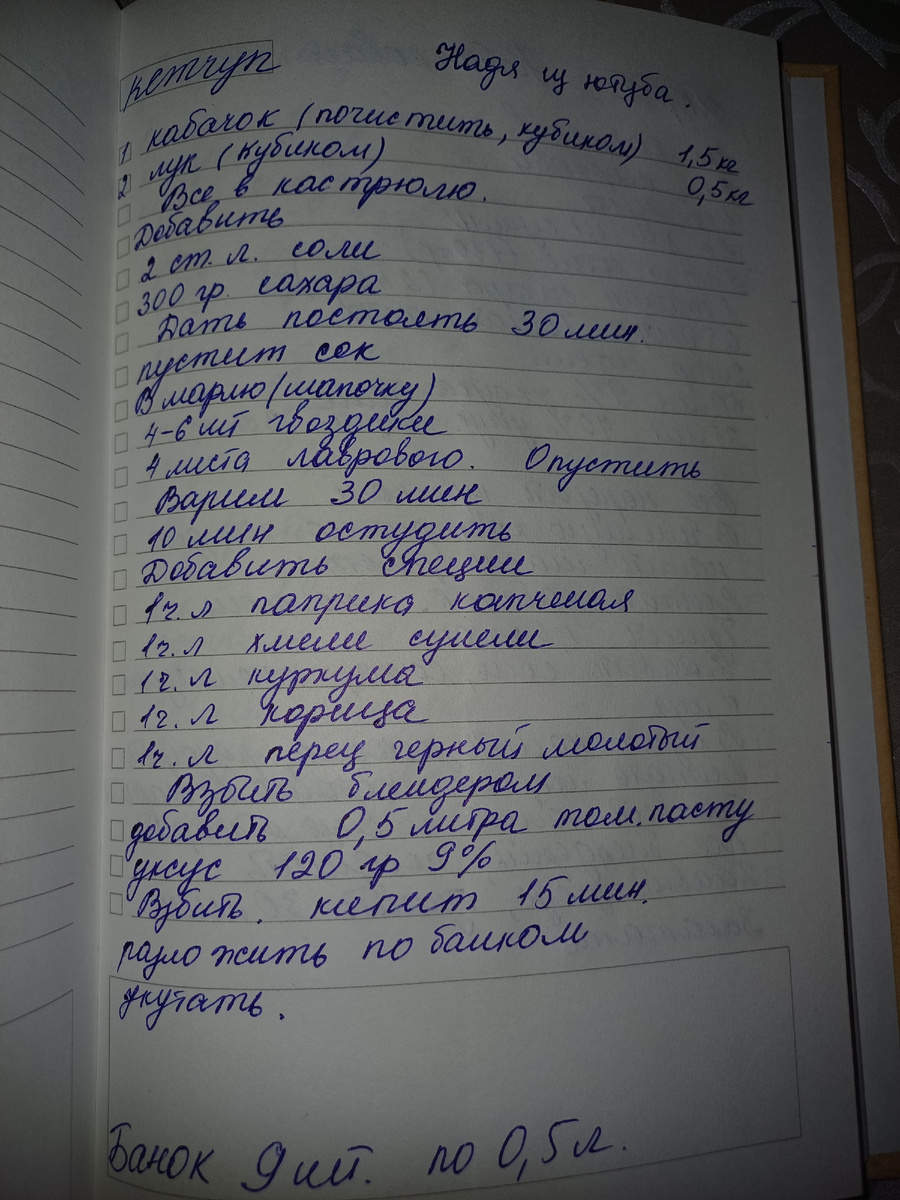 кетчуп
Надя из ютуба.
1 кабачок (почистить, кубиком) 1,5 кг
2 лук (кубиком) 0,5 кг
Все в кастрюлю.
Добавить
2 ст. л. соли
300 гр. сахара
Дать постоять 30 мин.
пустит сок
В марлю (шапочку)
4-6 шт гвоздики
4 листа лаврового. Опустить
Варим 30 мин
10 мин остудить
Добавить специи
1 ч. л паприка капченая
1 ч. л хмели сунели
1 ч. л куркума
1 ч. л корица
1 ч. л перец черный молотый
Взбить блендером
добавить 0,5 литра том. пасту
уксус 120 гр 9%
Взбить. кипит 15 мин.
разложить по банком
укутать.
Банок 9 шт. по 0,5 л.